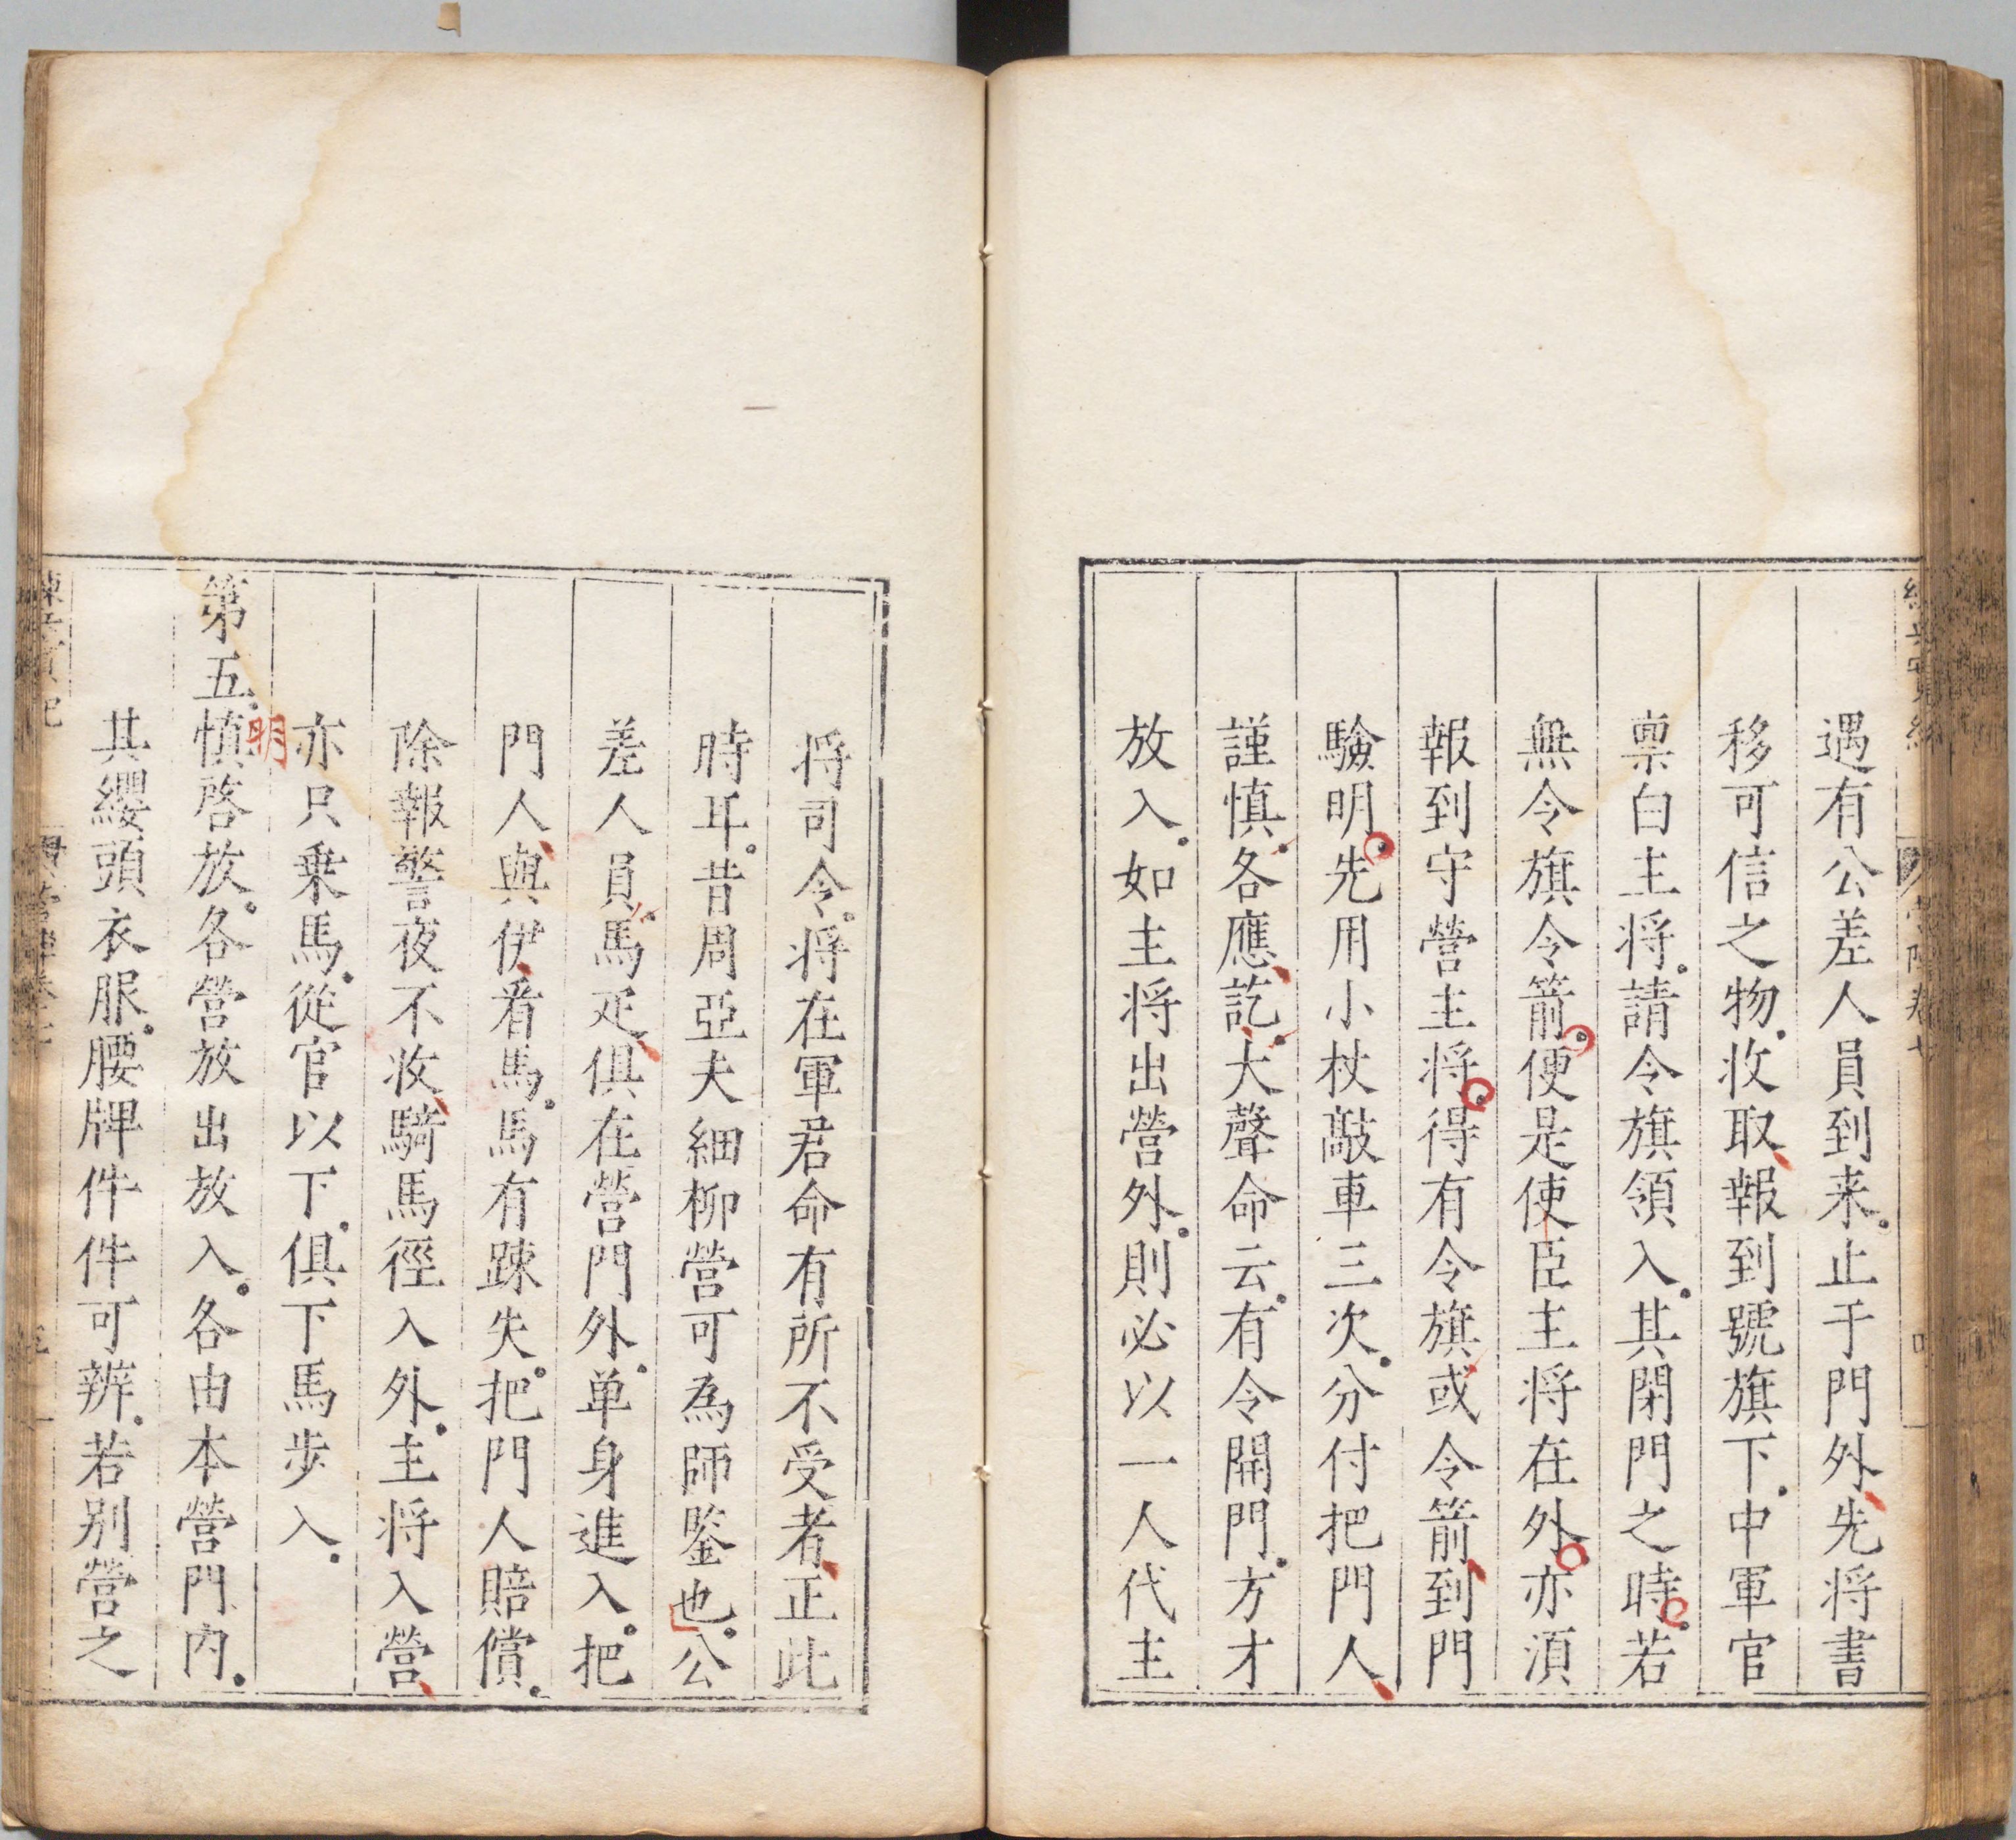 遇有公差人員到来止于門外先将書
移可信之物收取報到號旗下中軍官
禀白主将請令旗領入其閉門之時若
無令旗令箭便是使臣主将在外亦須
報到守營主将得有令旗或令箭到門
驗明先用小杖敲車三次分付把門人
謹慎各應訖大聲命云有令開門方才
放入如主将出營外則必以一人代主
将司令将在軍君命有所不受者正此
時耳昔周亞夫細柳營可為師鑒也公
差人員馬疋俱在營門外单身進入把
門人與伊看馬馬有踈失把門人賠償
除報警夜不收騎馬徑入外主将入營
亦只乗馬從官以下俱下馬步入
明
第五慎啓放各營放出放入各由本營門内
其纓頭衣服腰牌件件可辨若别營之